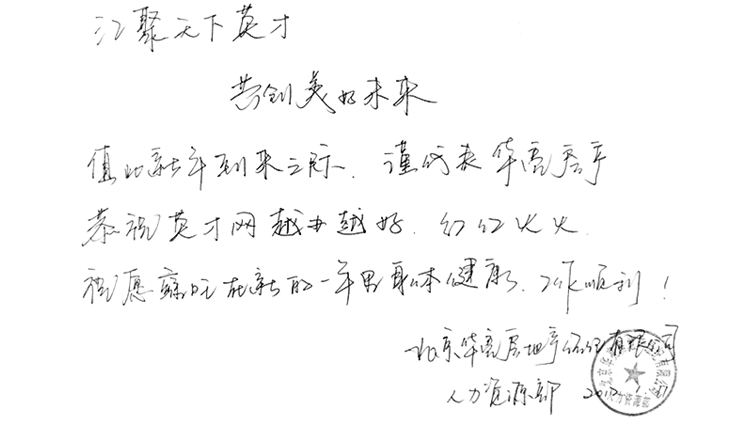 汇聚天下英才
共创美好未来
值此新年到来之际、谨代表华亮房产
恭祝英才网越办越好、红红火火、
祝愿 在新的一年里身体健康、工作顺利!
北京华亮房地产经纪有限公司
人力资源部